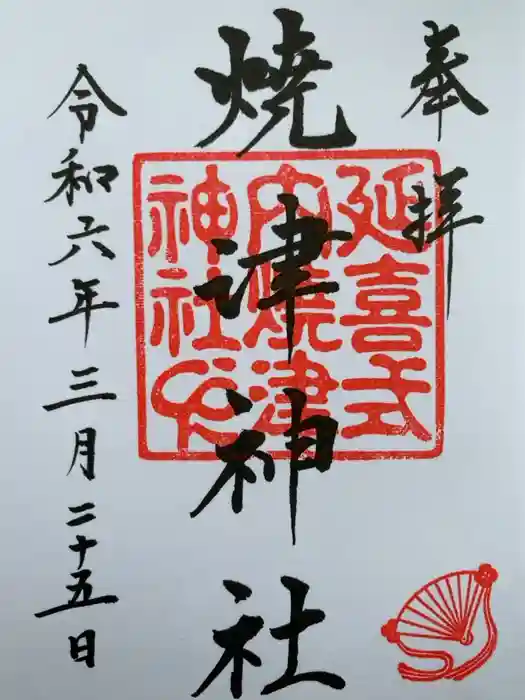 奉拝
延喜式
内焼津
神社印
焼津神社
令和六年三月二十五日